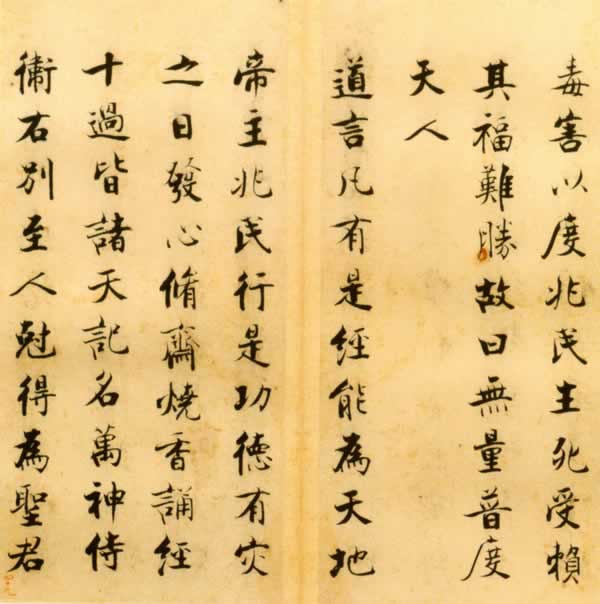 毒害以度兆民生死受賴
其福難勝故曰無量普度
天人
道言凡有是經能為天地
帝主兆民行是功德有灾
之日發心脩齋燒香誦經
十過皆諸天記名萬神侍
衛右別至人尅得為聖君